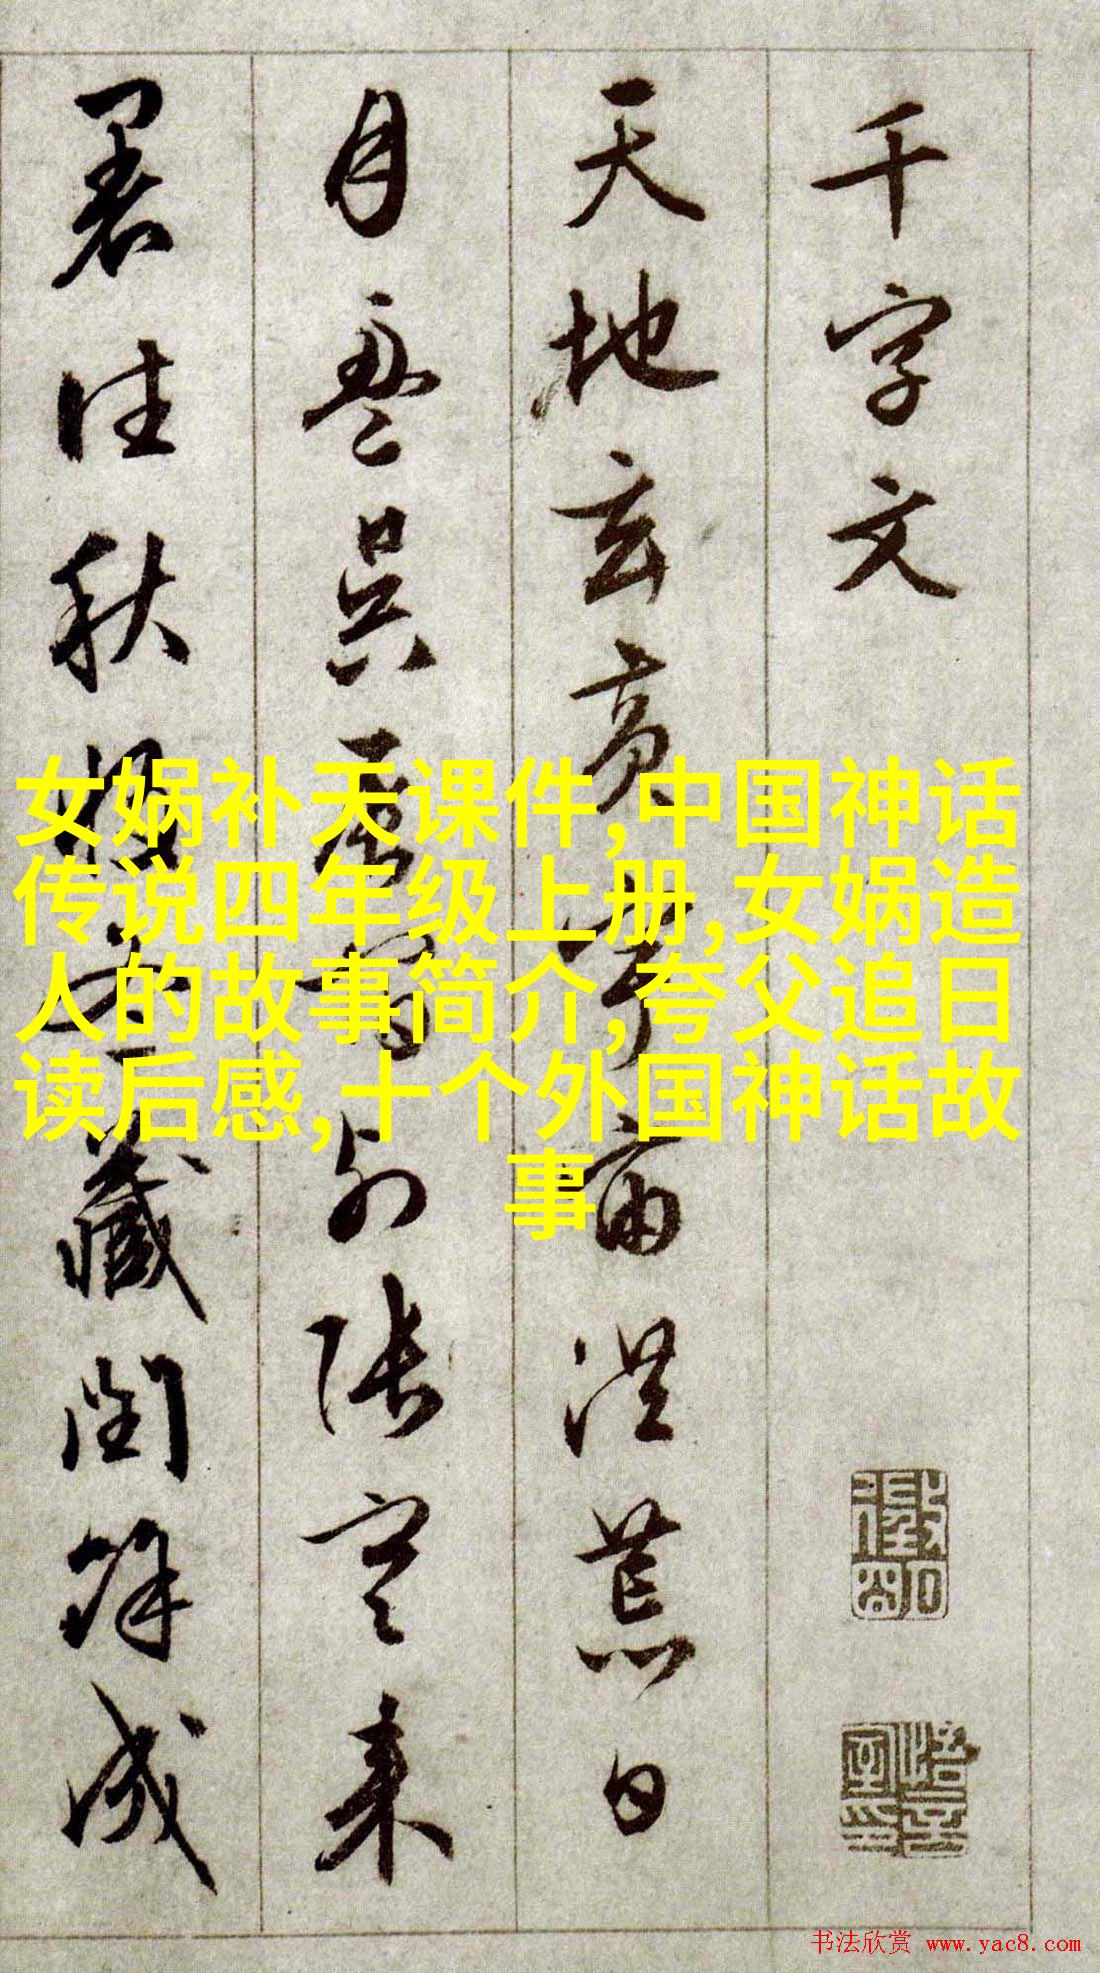 千字文
天地玄黄宇宙洪荒日
月盈昃辰宿列張寒来
暑往秋收冬藏閏餘成
女娲补天课件,中国神话
传说四年级上册,女娲造
人的故事简介,夸父追日
读后感,十个外国神话故
事
书法欣赏 www.yac8.com